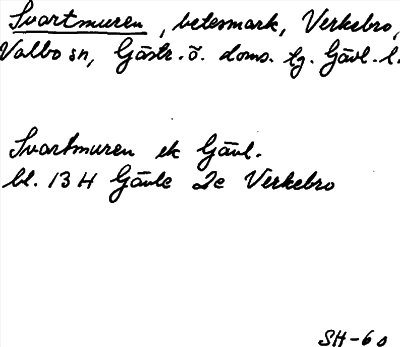 Svartmuren, betesmark, Verkebro,
Valbo sn, Gästr. ö. doms. tg. Gävl. l.
Svartmuren ek Gävl.
bl. 13 H Gävle 2e Verkebro
SH-60